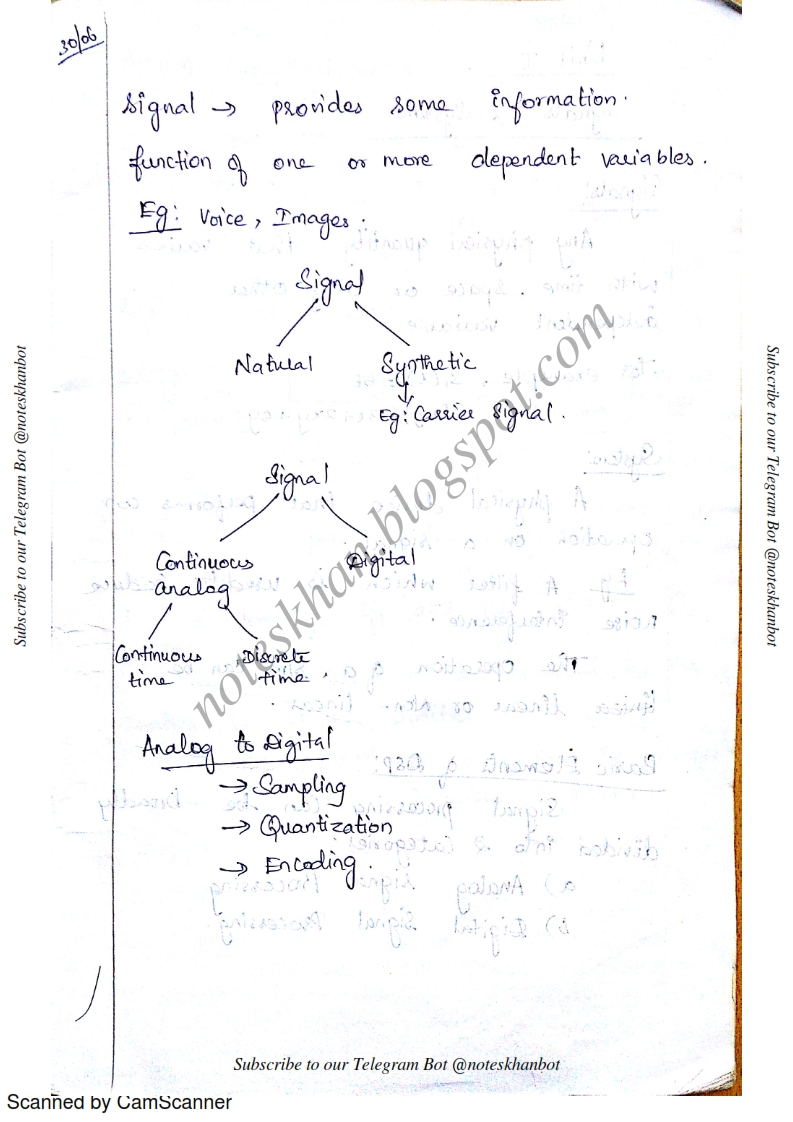 30/06
Signal → provides some information.
function of one or more dependent variables.
Eg: Voice, Images.
Signal
Natural Synthetic
Eg: Carrier Signal.
Signal
Continuous Digital
analog
Continuous Discrete
time time.
Analog to Digital
→ Sampling
→ Quantization
→ Encoding.
noteskhan.blogspot.com
Subscribe to our Telegram Bot @noteskhanbot
Subscribe to our Telegram Bot @noteskhanbot
Subscribe to our Telegram Bot @noteskhanbot
Scanned by CamScanner